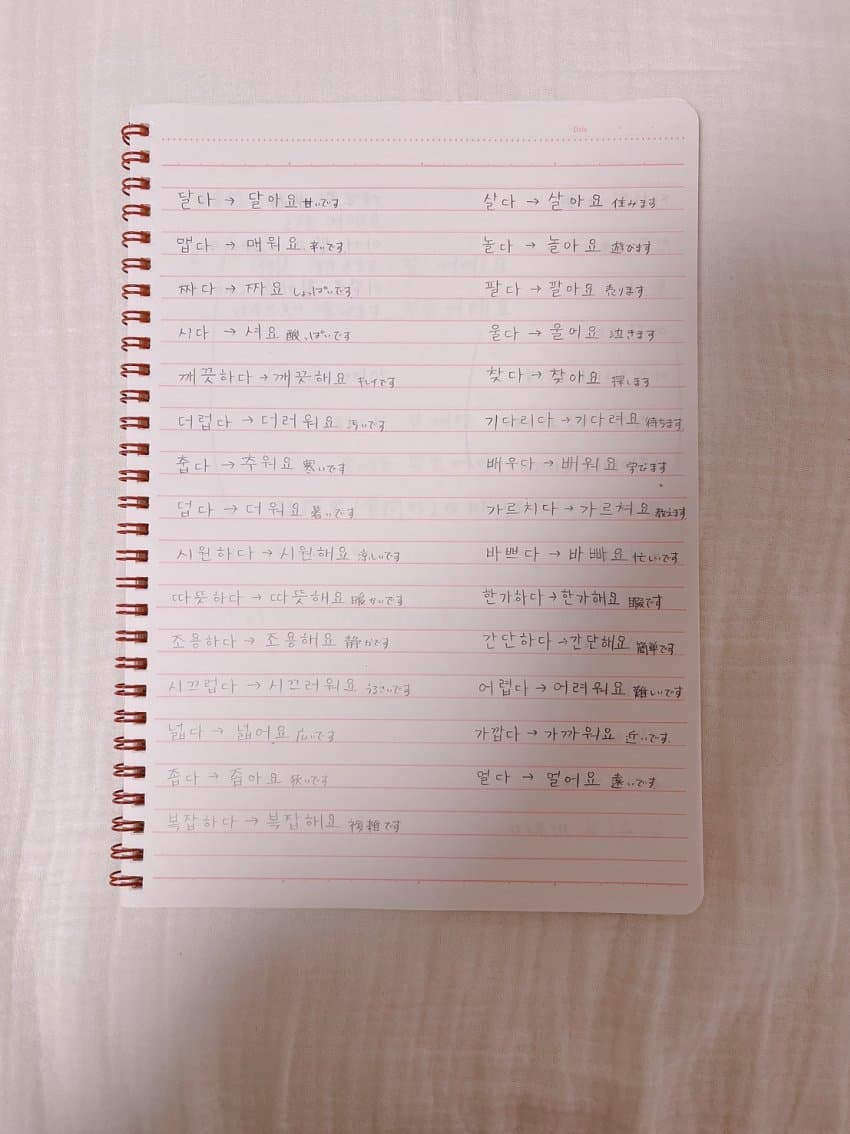 Date
달다 → 달아요 甘いです
맵다 → 매워요 辛いです
짜다 → 짜요 しょっぱいです
시다 → 셔요 酸っぱいです
깨끗하다 → 깨끗해요 キレイです
더럽다 → 더러워요 汚いです
춥다 → 추워요 寒いです
덥다 → 더워요 暑いです
시원하다 → 시원해요 涼しいです
따뜻하다 → 따뜻해요 暖かいです
조용하다 → 조용해요 静かです
시끄럽다 → 시끄러워요 うるさいです
넓다 → 넓어요 広いです
좁다 → 좁아요 狭いです
복잡하다 → 복잡해요 複雑です
살다 → 살아요 住みます
놀다 → 놀아요 遊びます
팔다 → 팔아요 売ります
울다 → 울어요 泣きます
찾다 → 찾아요 探します
기다리다 → 기다려요 待ちます
배우다 → 배워요 学びます
가르치다 → 가르쳐요 教えます
바쁘다 → 바빠요 忙しいです
한가하다 → 한가해요 暇です
간단하다 → 간단해요 簡単です
어렵다 → 어려워요 難しいです
가깝다 → 가까워요 近いです
멀다 → 멀어요 遠いです